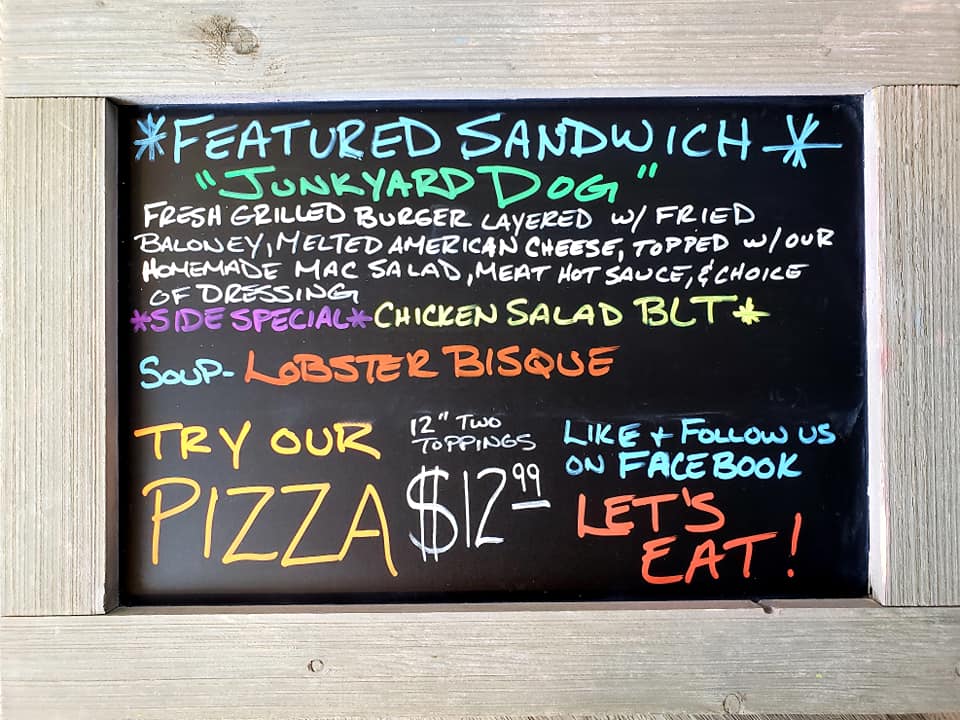 *FEATURED SANDWICH*
"JUNKYARD DOG"
FRESH GRILLED BURGER LAYERED W/ FRIED
BALONEY, MELTED AMERICAN CHEESE, TOPPED W/ OUR
HOMEMADE MAC SALAD, MEAT HOT SAUCE, & CHOICE
OF DRESSING
*SIDE SPECIAL* CHICKEN SALAD BLT*
SOUP- LOBSTER BISQUE
TRY OUR
PIZZA
12" TWO
TOPPINGS
$12.99
LIKE + FOLLOW US
ON FACEBOOK
LET'S
EAT!